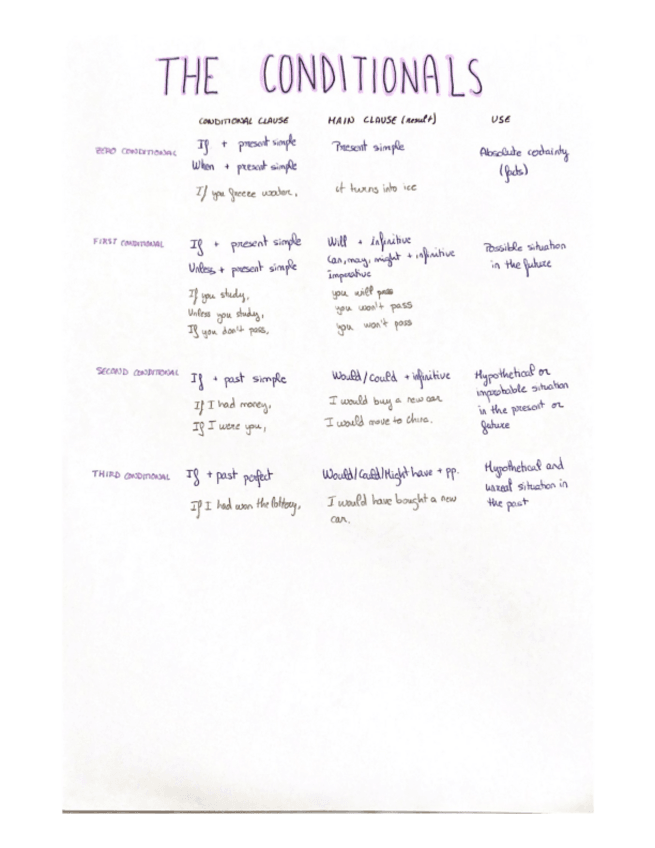 THE CONDITIONALS
CONDITIONAL CLAUSE MAIN CLAUSE (result) USE
ZERO CONDITIONAL If + present simple Present simple Absolute certainty
When + present simple (facts)
If you freeze water, it turns into ice
FIRST CONDITIONAL If + present simple Will + infinitive Possible situation
Unless + present simple Can, may, might + infinitive in the future
Imperative
If you study, you will pass
Unless you study, you won't pass
If you don't pass, you won't pass
SECOND CONDITIONAL If + past simple Would/Could + infinitive Hypothetical or
improbable situation
If I had money, I would buy a new car in the present or
If I were you, I would move to China. future
THIRD CONDITIONAL If + past perfect Would/Could/Might have + pp. Hypothetical and
unreal situation in
If I had won the lottery, I would have bought a new the past
car.